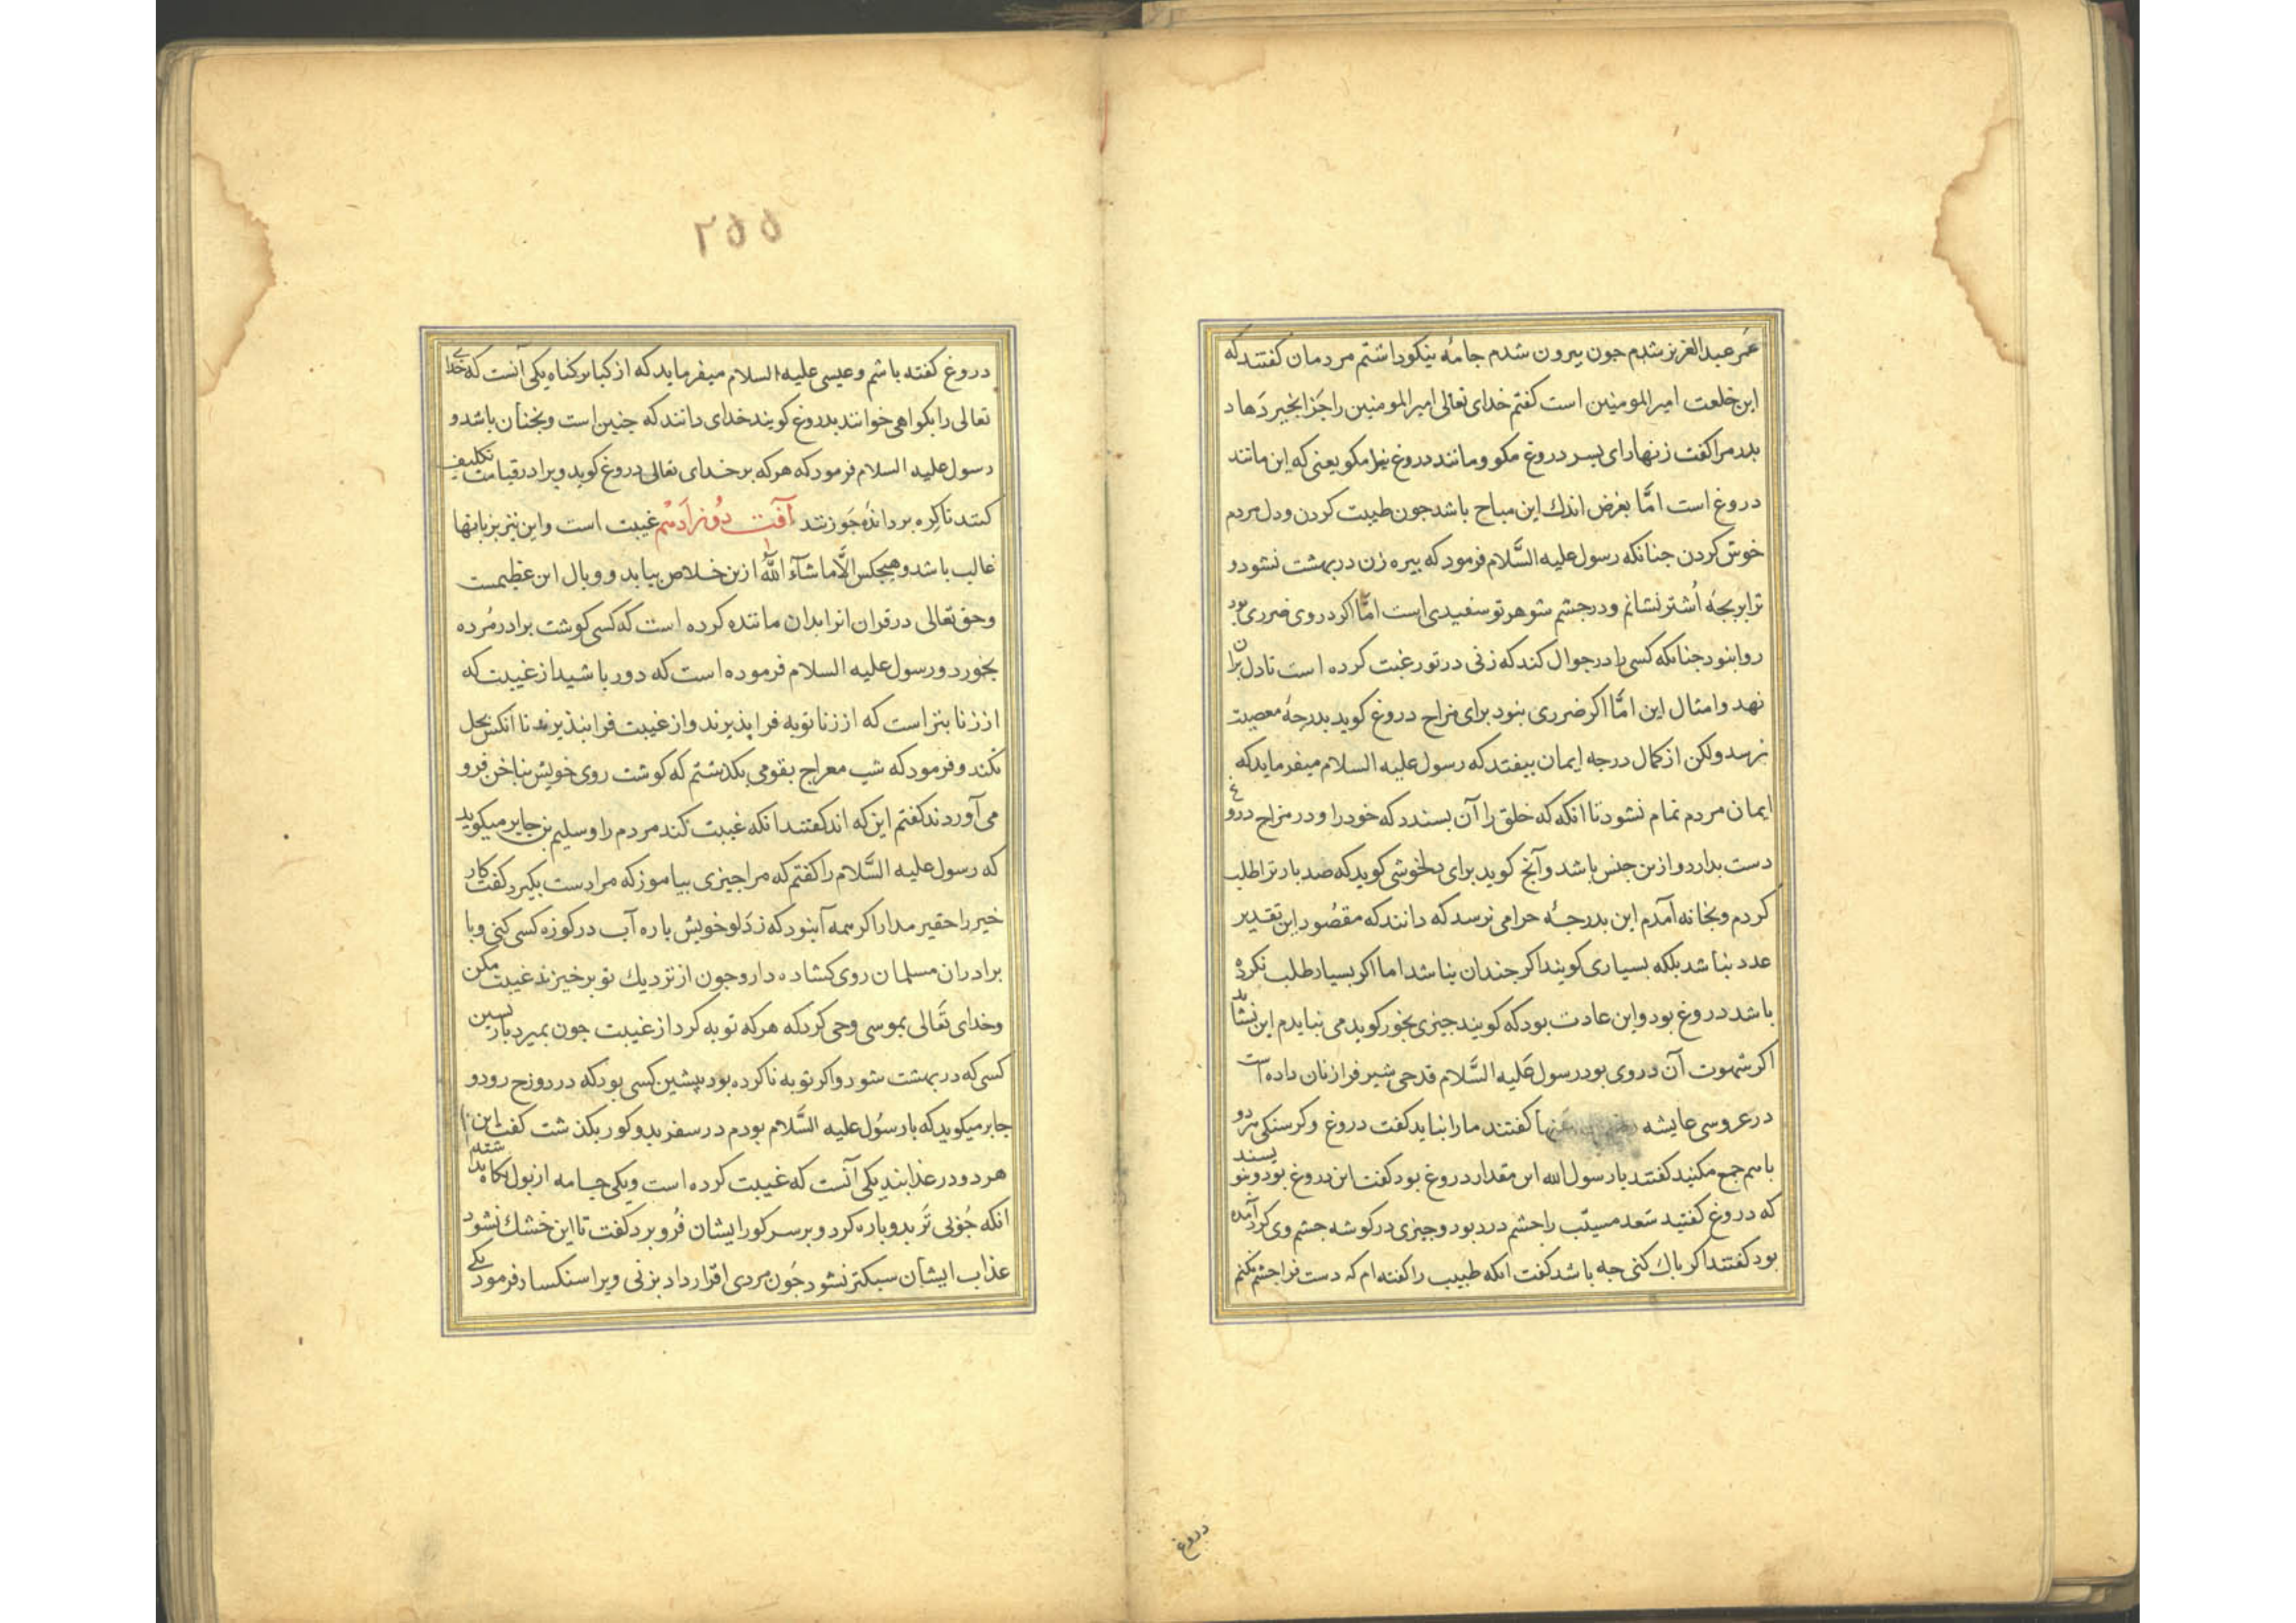 عمر عبدالعزیز شدم جون بیرون شدم جامهٔ نیکو داشتم مردمان کفتند که
این خلعت امیرالمومنین است کفتم خدای تعالی امیرالمومنین را جزا بخیر دهاد
بدر مرا کفت زنهار ای بسر دروغ مکو و مانند دروغ نیز مکو یعنی که این مانند
دروغ است امّا بغرض اندك این مباح باشد جون طیبت کردن و دل مردم
خوش کردن جنانکه رسول علیه السَّلام فرمود که بیره زن در بهشت نشود و
ترا بر بجهٔ اُشتر نشانم و در جشم شوهر تو سفیدی است امّا اکر در وی ضرری بود
روا نبود جنانکه کسی را در جوال کند که زنی در تو رغبت کرده است تا دل بران
نهد و امثال این امّا اکر ضرری نبود برای مزاح دروغ کوید بدرجهٔ معصیت
نرسد ولکن از کمال درجه ایمان بیفتد که رسول علیه السلام میفرماید که
ایمان مردم تمام نشود تا انکه که خلق را آن بسندد که خود را و در مزاح دروغ
دست بدارد و ازین جنس باشد و آنج کوید برای دلخوشی کوید که صد بار ترا طلب
کردم و بخانه آمدم این بدرجهٔ حرامی نرسد که دانند که مقصُود این تقدیر
عدد نباشد بلکه بسیاری کویند اکر جندان نباشد اما اکر بسیار طلب نکرده
باشد دروغ بود و این عادت بود که کویند جیزی بخور کوید می نبایدم این نشاید
اکر شهوت آن در وی بود رسول عَلیه السَّلام قدحی شیر فرا زنان داده است
در عروسی عایشه عنها کفتند ما را نباید کفت دروغ و کرسنکی هر دو
باهم جمع مکنید کفتند یا رسول الله این مقدار دروغ بود کفت این دروغ بود و بنویسند
که دروغ کفتید سَعد مسیّب را جشم درد بود و جیزی در کوشه جشم وی کرد آمده
بود کفتند اکر باك کنی جه باشد کفت انکه طبیب را کفته ام که دست فرا جشم نکنم
دروغ
۲۵۵
دروغ کفته باشم و عیسی علیه السلام میفرماید که از کبایر کناه یکی آنست که خدای
تعالی را بکواهی خوانند بدروغ کویند خدای دانند که جنین است و بجنان باشد و
رسول علیه السلام فرمود که هر که بر خدای تعالی دروغ کوید ویرا در قیامت تکلیف
کنند تا کِره بر دانهٔ جَو زنند آفت دوازدهم غیبت است و این نیز بزبانها
غالب باشد و هیجکس الّا ماشآء اللّٰه ازین خلاص نیابد و وبال این عظیمست
و حق تعالی در قران انرا بدان مانند کرده است که کسی کوشت برادر مُرده
بخورد و رسول علیه السلام فرموده است که دور باشید از غیبت که
از زنا بتر است که از زنا توبه فرا پذیرند و از غیبت فرا نپذیرند تا انکس بحل
نکند و فرمود که شب معراج بقومی بکذشتم که کوشت روی خویش بناخن فرو
می آوردند کفتم این که اند کفتند انکه غیبت کنند مردم را و سلیم بن جابر میکوید
که رسول علیه السَّلام را کفتم که مرا جیزی بیاموز که مرا دست بکیرد کفت کار
خیر را حقیر مدار اکر همه آنبود که ز دَلو خویش باره آب در کوزه کسی کنی و با
برادران مسلمان روی کشاده دار و جون از نزدیك تو برخیزند غیبت مکن
و خدای تَعالی بموسی وحی کرد که هر که توبه کرد از غیبت جون بمیرد بازپسین
کسی که در بهشت شود و اکر توبه ناکرده بود پیشین کسی بود که در دوزخ رود و
جابر میکوید که با رسُول علیه السَّلام بودم در سفر بدو کور بکذشت کفت این
هر دو در عذابند یکی آنست که غیبت کرده است و یکی جامه از بول نکاه نداشته
انکه جُوبی تَر بدوباره کرد و بر سر کور ایشان فُرو برد کفت تا این خشك نشود
عذاب ایشان سبکتر نشود جَون مردی اقرار داد بزنی ویرا سنکسار فرمود یکی